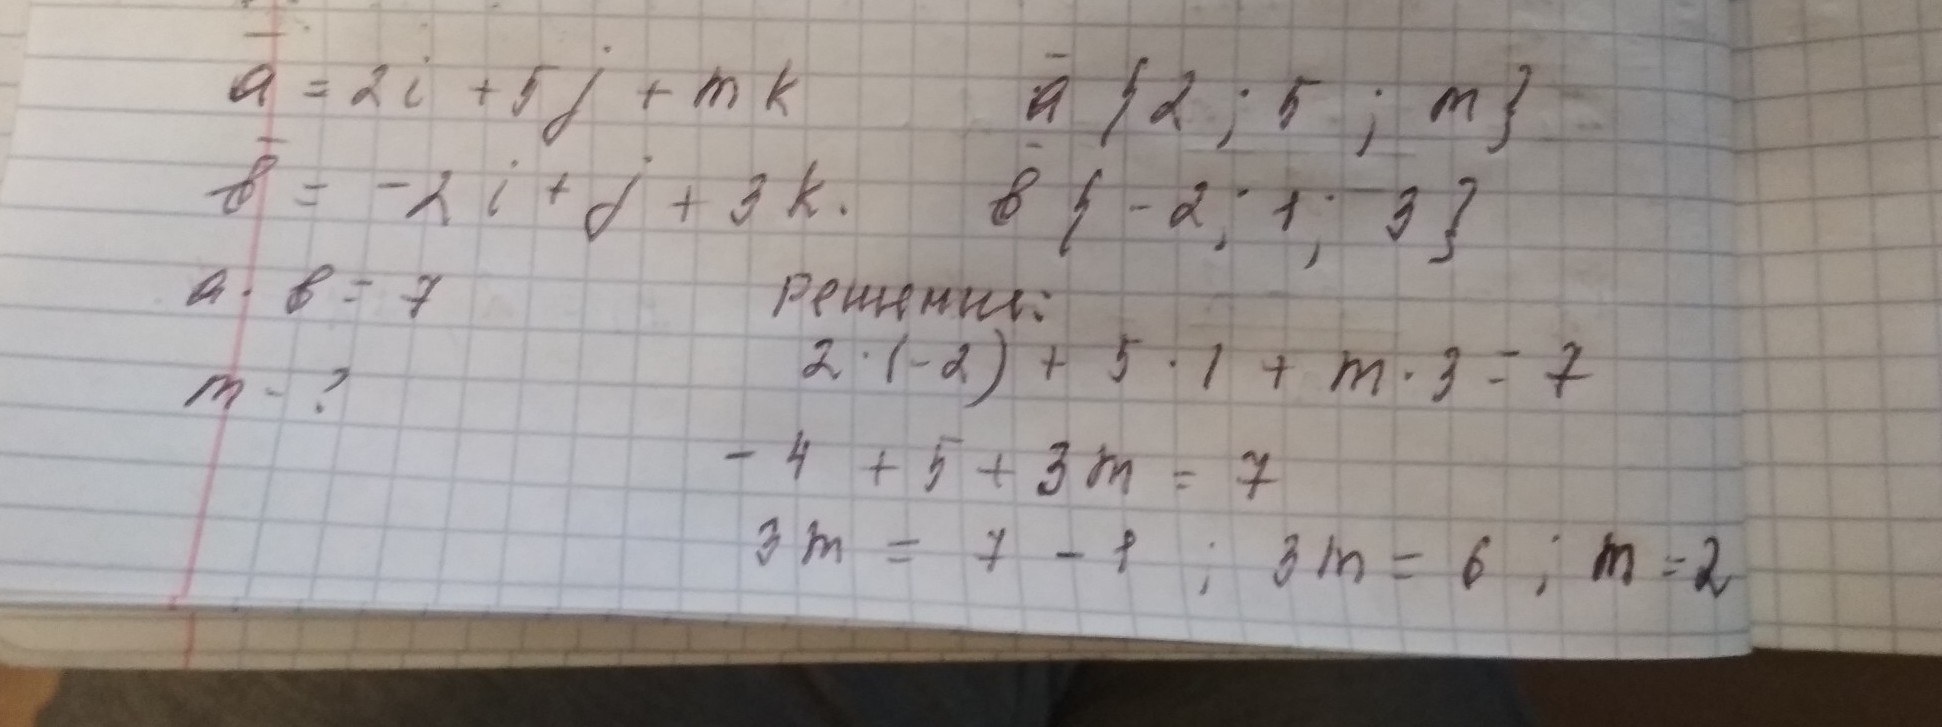 a̅ = 2i + 5j + mk   a̅ {2 ; 5 ; m}
b̅ = -2i + j + 3k.   b̅ {-2; 1; 3}
a · b = 7   Решение:
m - ?   2·(-2) + 5·1 + m·3 = 7
-4 + 5 + 3m = 7
3m = 7 - 1 ; 3m = 6 ; m = 2